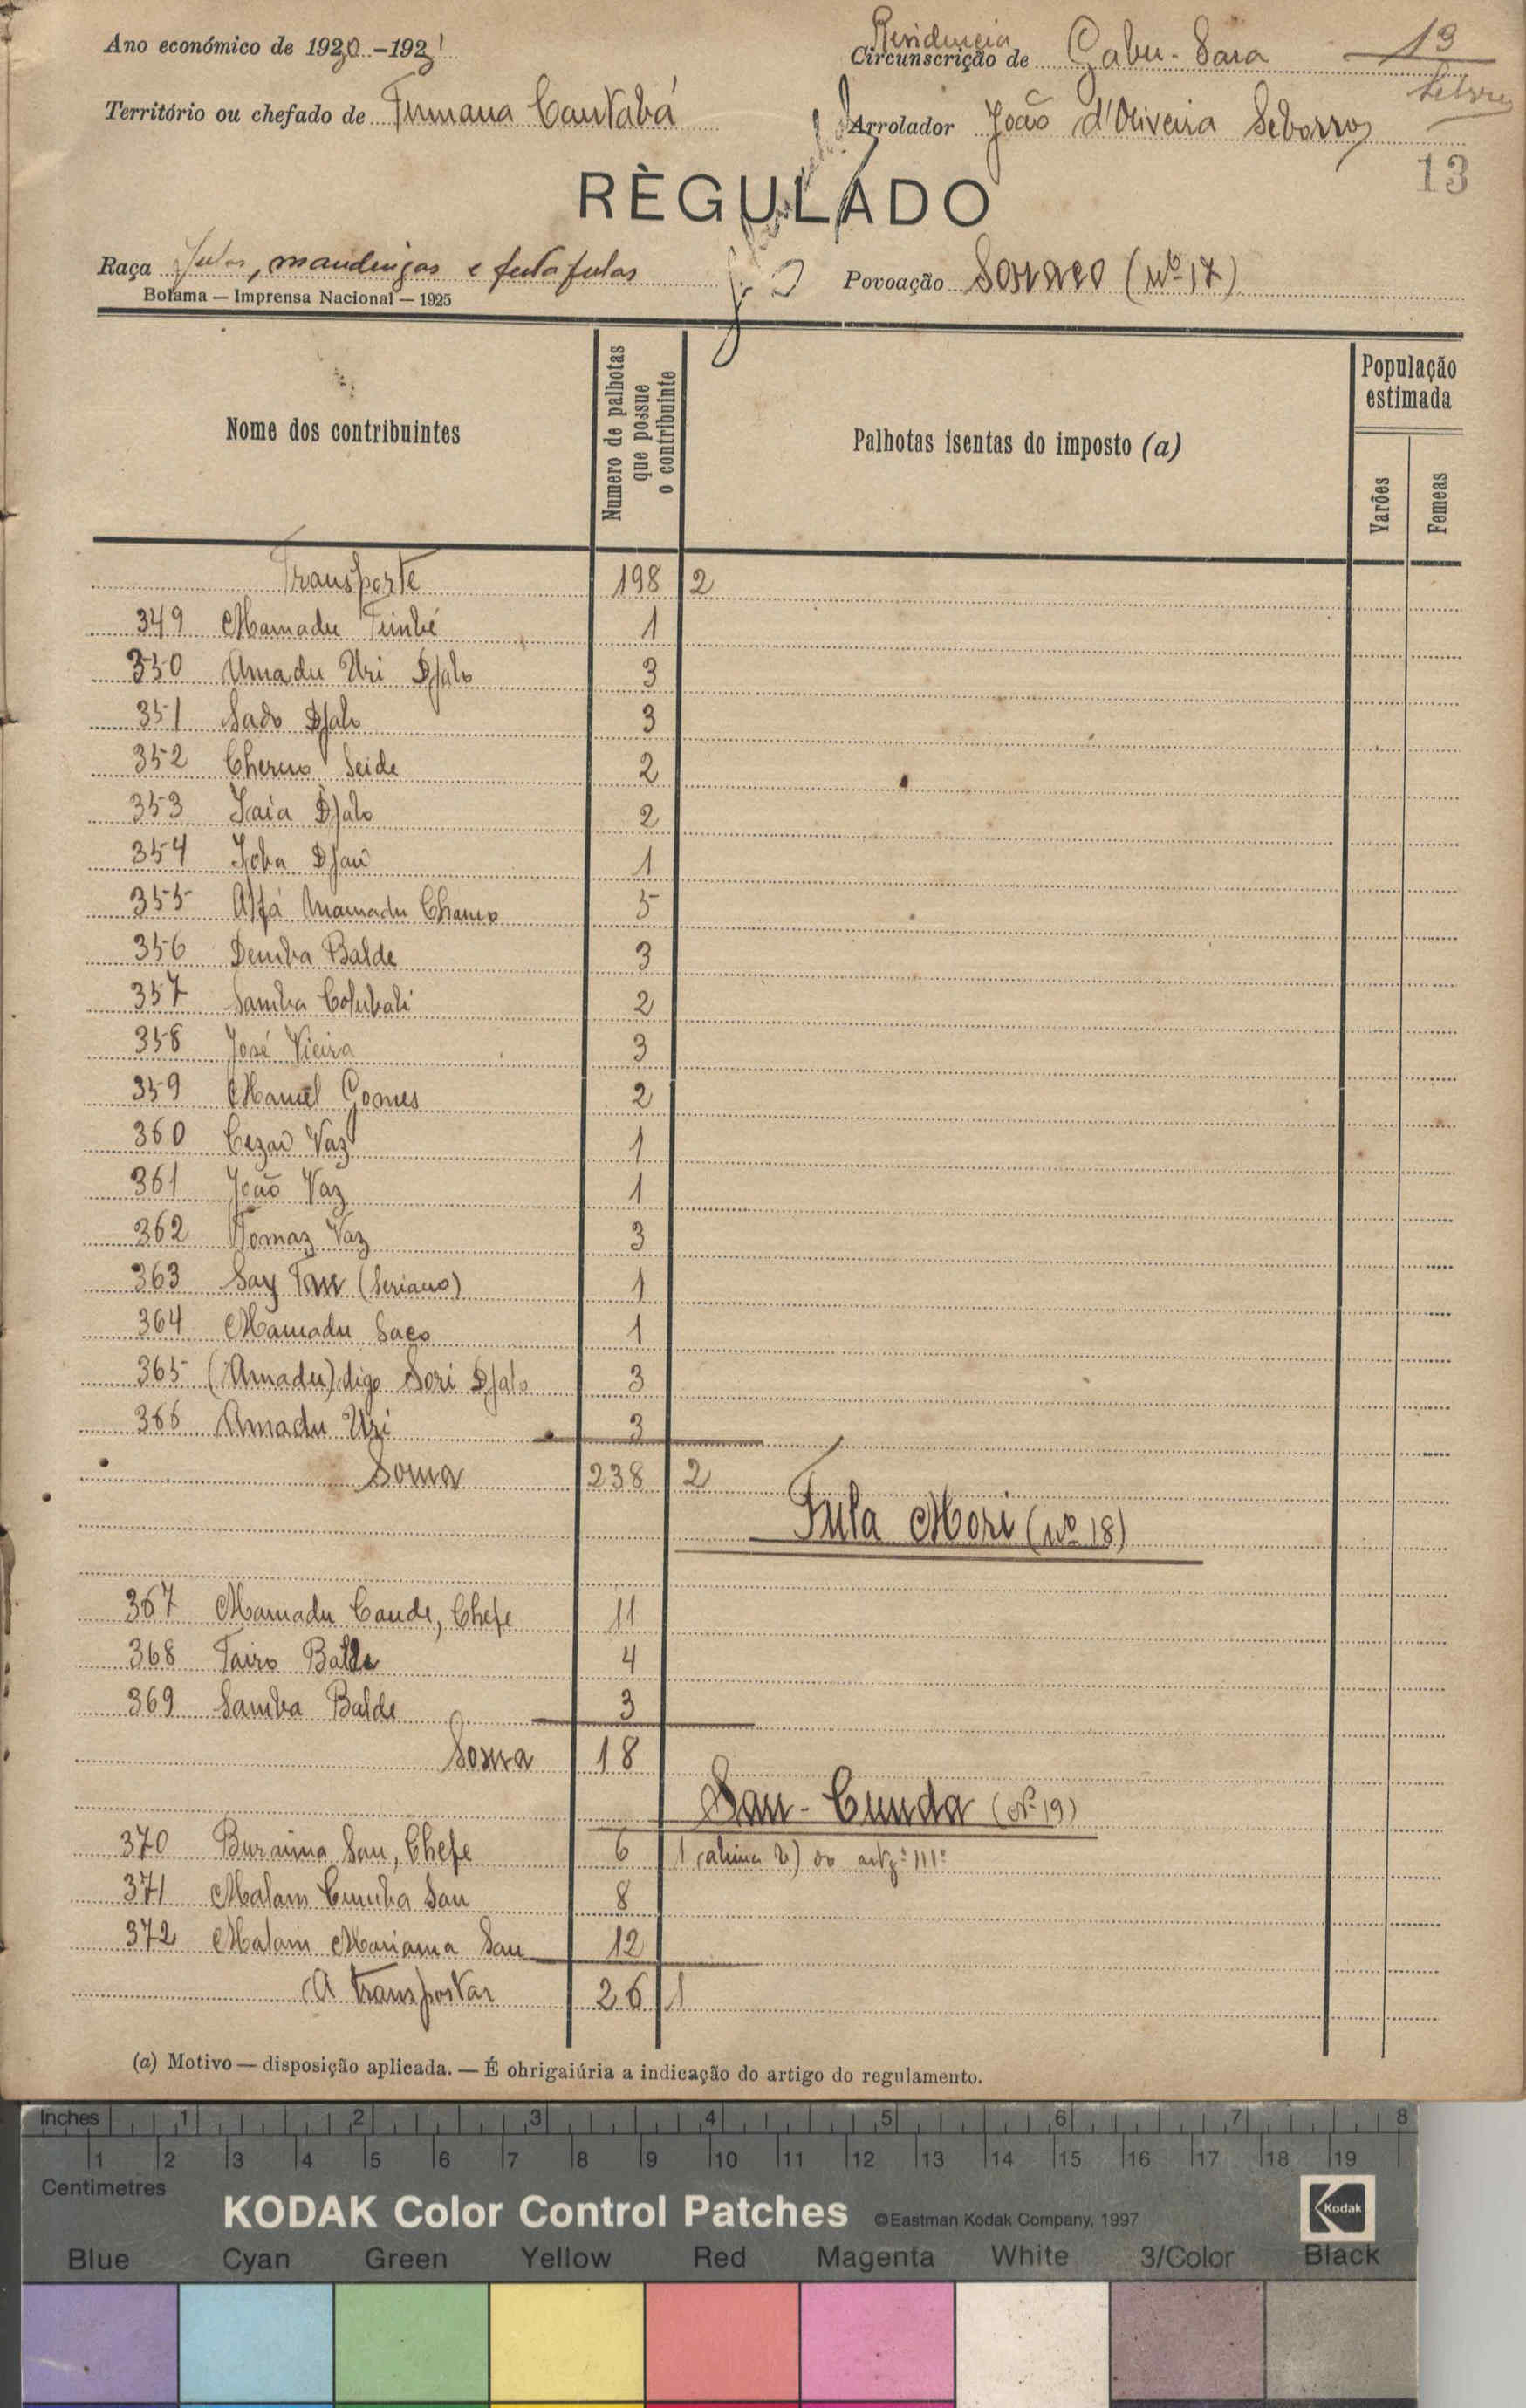 Ano económico de 1930 -1931
Residencia
Circunscrição de Gabu-Sara
13
Território ou chefado de Firmana Cantabá
Arrolador João d'Oliveira
13
RÈGULADO
Raça fulas, mandingas e futa fulas
Povoação Sonaco (nº 17)
Bolama — Imprensa Nacional — 1925
Nome dos contribuintes
Numero de palhotas que possue o contribuinte
Palhotas isentas do imposto (a)
População estimada
Varões
Femeas
Transporte 198 2
349 Mamadu Timbé 1
350 Amadu Uri Djalo 3
351 Sado Djalo 3
352 Cherno Seide 2
353 Iaia Djalo 2
354 Joba Djau 1
355 Alfá Mamadu Chamo 5
356 Demba Balde 3
357 Samba Colubali 2
358 José Vieira 3
359 Manuel Gomes 2
360 Cezar Vaz 1
361 João Vaz 1
362 Tomaz Vaz 3
363 Say Tau (Seriano) 1
364 Mamadu Saco 1
365 (Amadu) digo Sori Djalo 3
366 Amadu Uri 3
Soma 238 2
Fula Mori (nº 18)
367 Mamadu Cande, Chefe 11
368 Tairo Balde 4
369 Samba Balde 3
Soma 18
San-Cunda (nº 19)
370 Buraima San, Chefe 6 1 (alinea b) do artº 111º
371 Malam Cumba San 8
372 Malam Mariama San 12
A transportar 26 1
(a) Motivo — disposição aplicada. — É obrigaiúria a indicação do artigo do regulamento.
Inches 1 2 3 4 5 6 7 8
1 2 3 4 5 6 7 8 9 10 11 12 13 14 15 16 17 18 19
Centimetres
KODAK Color Control Patches ©Eastman Kodak Company, 1997 Kodak
Blue Cyan Green Yellow Red Magenta White 3/Color Black